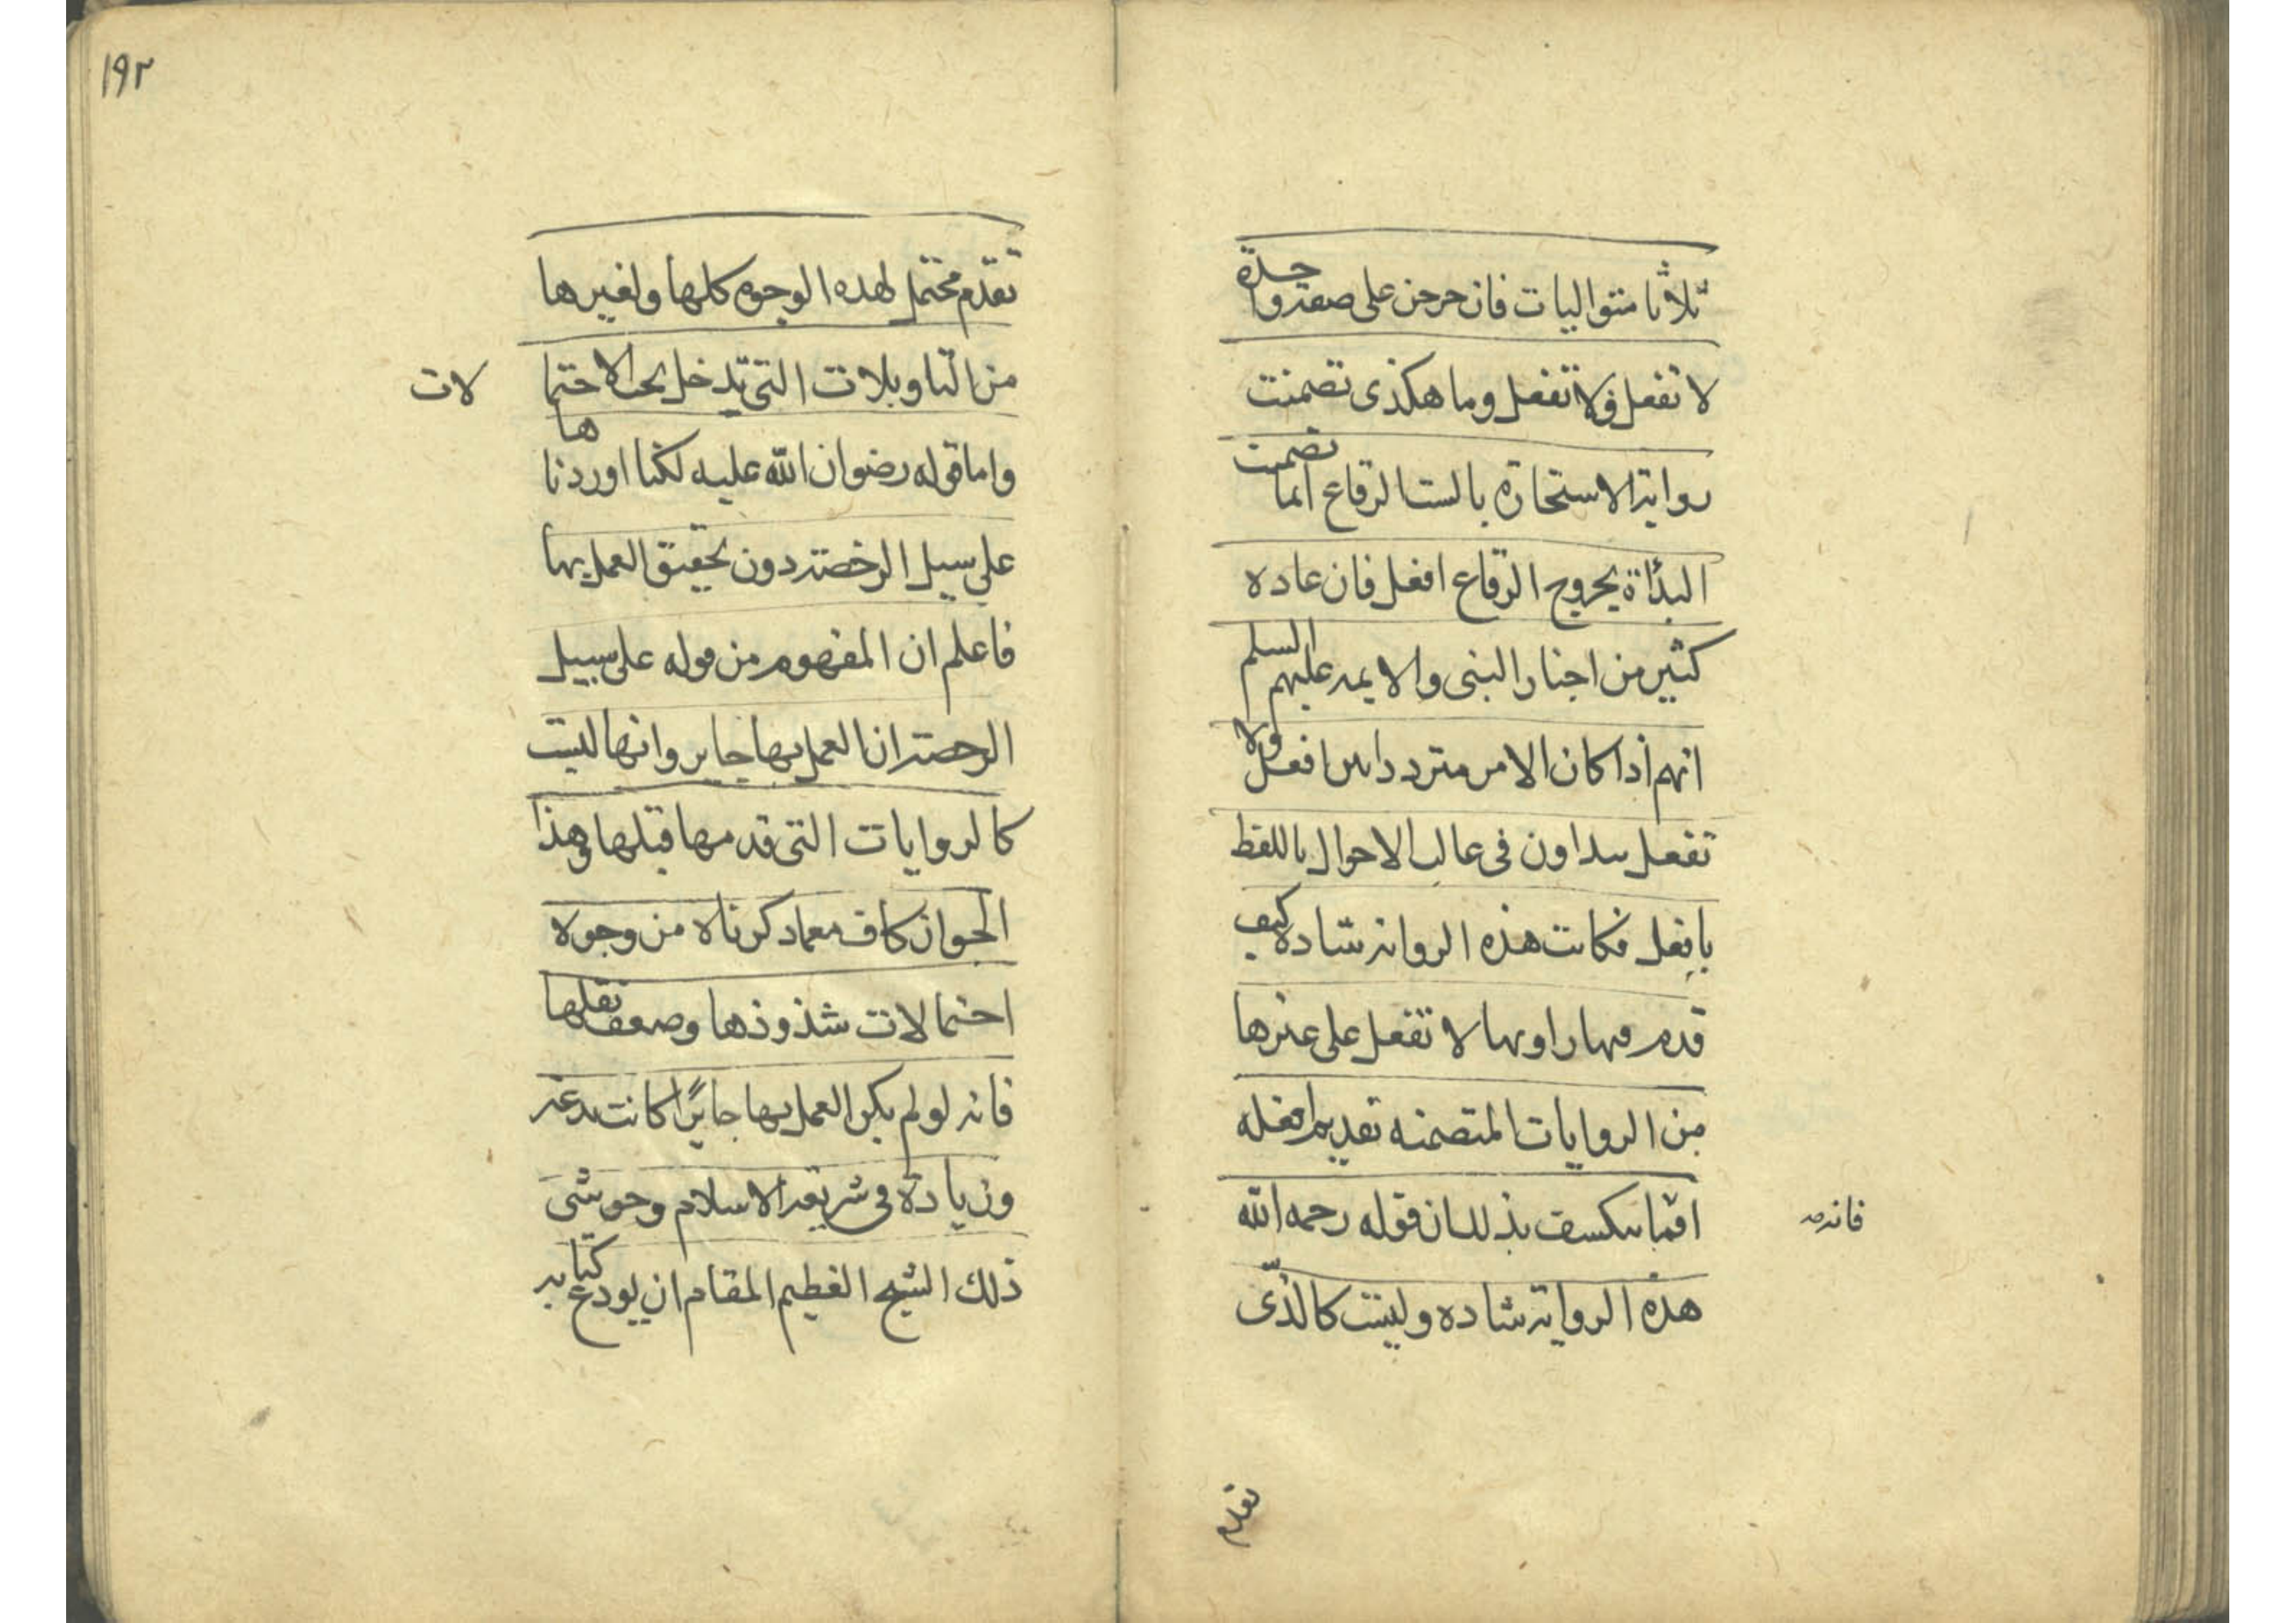 ثلاثا متواليات فان خرجن على صفة واحدة
لا تفعل فلا تفعل وما هكذى تضمنت
رواية الاستخارة بالست الرقاع انما تضمنت
البدأة بخروج الرقاع افعل فان عاده
كثير من اخبار النبى والايمه عليهم السلم
انهم اذا كان الامر مترددا بين افعل ولا
تفعل يبداون فى غالب الاحوال باللفظ
بافعل فكانت هذه الرواية شاده كيف
قدم فيها راويها لا تفعل على غيرها
من الروايات المتضمنه تقديم افعله
اقتبا ينكشف بذلك ان قوله رحمه الله
فانه
هذه الرواية شاده وليست كالذى
تقدم
١٩٢
تقدم محتمل لهذه الوجوه كلها ولغيرها
من التاويلات التى تدخل تحت الاحتما
لات
واما قوله رضوان الله عليه لكنا اوردناها
على سبيل الرخصة دون تحقيق العمل بها
فاعلم ان المفهوم من قوله على سبيل
الرخصة ان العمل بها جايز وانها ليست
كالروايات التى قدمها قبلها وهذا
الجواز كاف مع ما ذكرناه من وجوه
احتمالات شذوذها وضعف نقلها
فانه لو لم يكن العمل بها جايزًا كانت بدعة
وزيادة فى شريعة الاسلام وحوشى
ذلك الشيخ العظيم المقام ان يودع كتابه